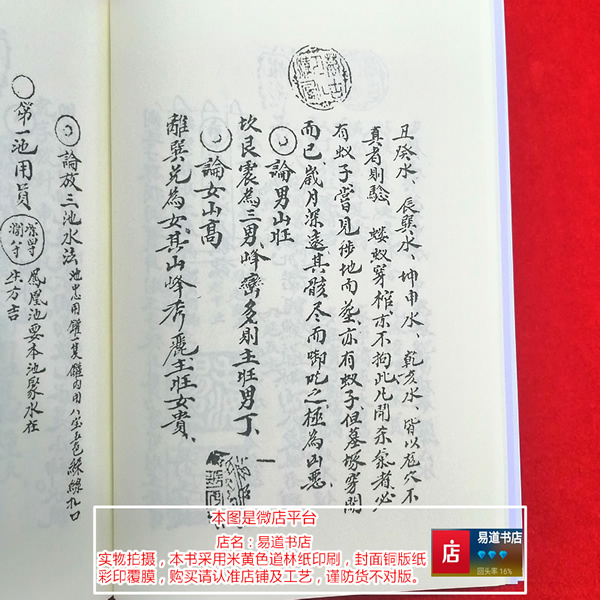 丑癸水、辰巽水、坤申水、乾亥水、皆以龙穴不
真者則騐、蝼蚁穿棺亦不拘此、凡開
有蚁子、嘗見掃地而葬、亦有蚁子、但墓塚穿開
而已、歲月深遠、其骸尽而啣吃之、極為凶惡、
論男山旺
坎艮震為三男、峰巒多則主旺男丁、
論女山高
離巽兌為女、其山峰秀麗主旺女貴、
論放三池水法
第一池用員
鳳凰池要本池聚水在
生方吉
本图是微店平台
店名：易道书店
实物拍摄，本书采用米黄色道林纸印刷，封面铜版纸
彩印覆膜，购买请认准店铺及工艺，谨防货不对版。
店
易道书店
回头率 16%